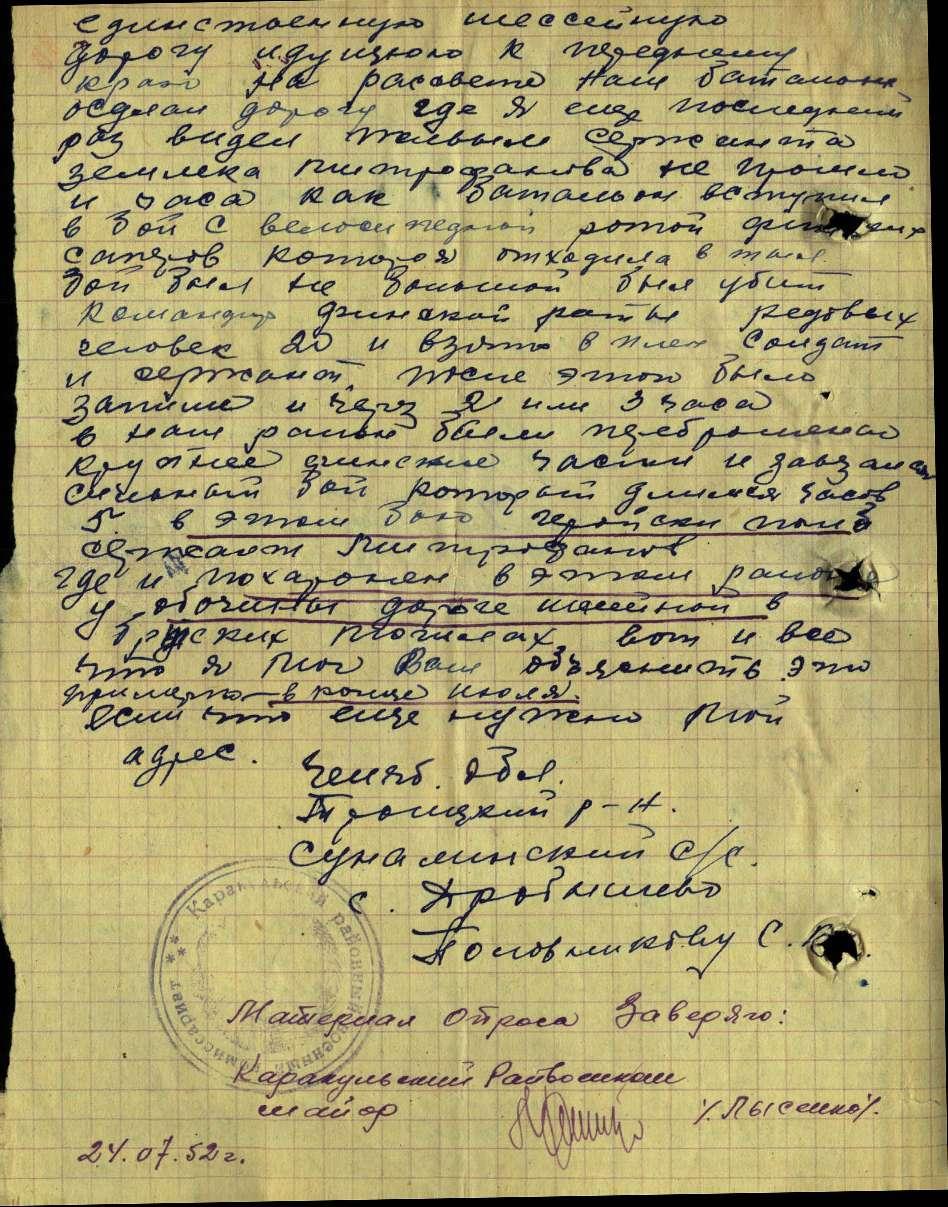 единственную шессейную
дорогу идущюю к переднему
краю на рассвете наш батальон
оседлал дорогу где я ещё последний
раз видел живым сержанта
землека Митрофанова не прошло
и часа как батальон вступил
в бой с велосипедной ротой финских
саперов которая отходила в тыл
бой был не большой был убит
командир финской роты редовых
человек 20 и взято в плен солдат
и сержант, после этого было
затише и через 2 или 3 часа
в наш раион были переброшенны
крупнее финские части и завязался
сильный бой который длился часов
5 в этом бою геройски погиб
сержант Митрофанов
где и похаронен в этом районе
у обочины дороге шосейной в
братских могилах, вот и все
что я мог Вам объяснить это
примерно в конце июля.
если что еще нужно мой
адрес.
Челяб. обл.
Троицкий р-н.
Суналинский с/с.
с. Дробышево
Половникову С.
Материал опроса Заверяю:
Каракульский Райвоенком
майор /Лысенко/.
24.07.52 г.
** Каракульский районный военный комиссариат **